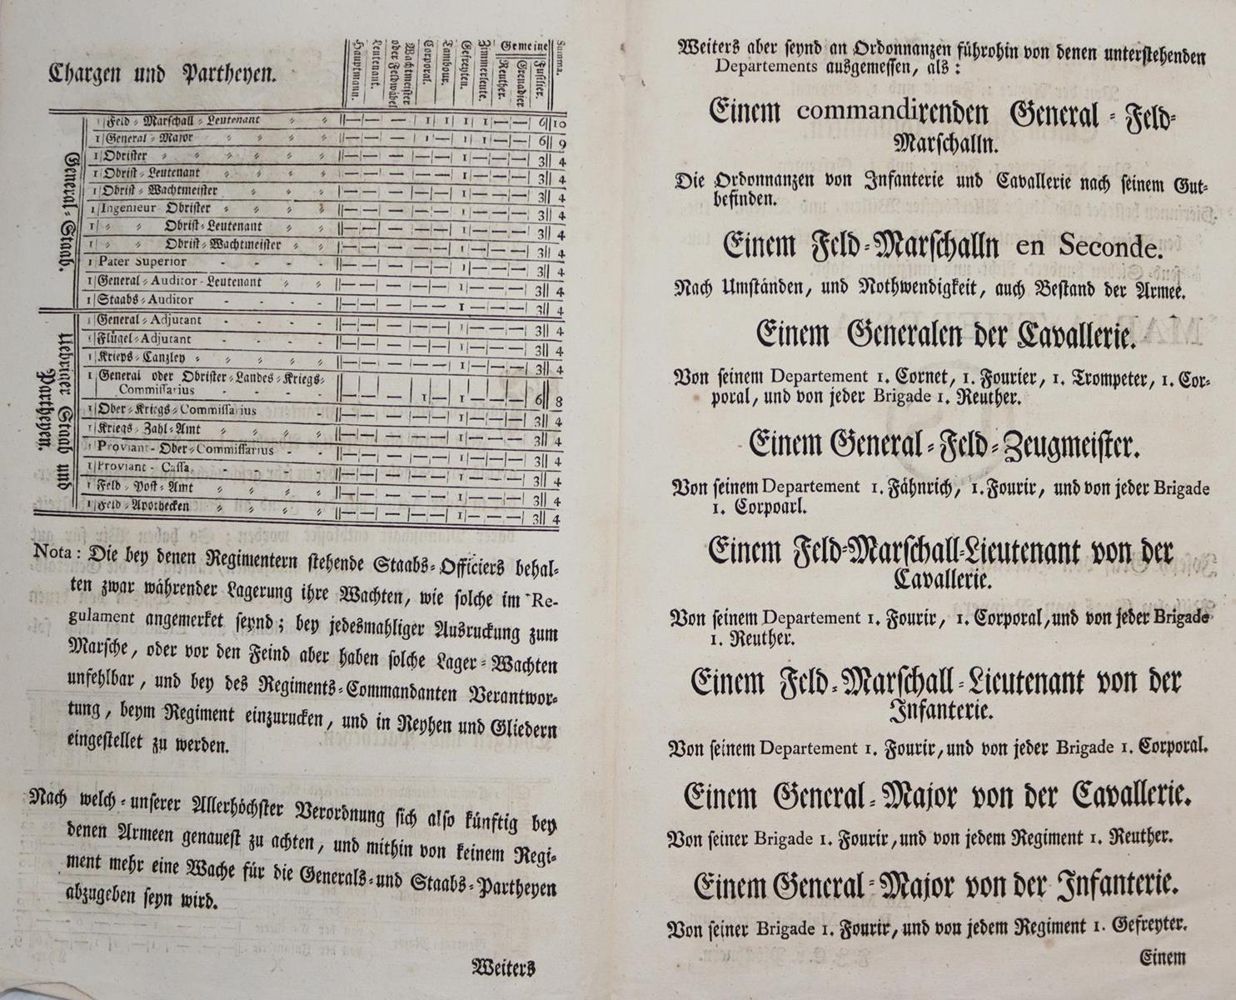 Chargen und Partheyen.
Hauptmann.
Leutenant.
Wachtmeister oder Feldwäbel
Corporal.
Tambour.
Gefreyten.
Zimmerleute.
Gemeine
Reuther.
Grenadier
Fusilier.
Summa.
General-Staab.
1 Feld-Marschall-Leutenant — — — 1 1 1 1 — — 6 10
1 General-Major — — — 1 — 1 1 — — 6 9
1 Obrister — — — — — 1 — — — 3 4
1 Obrist-Leutenant — — — — — 1 — — — 3 4
1 Obrist-Wachtmeister — — — — — 1 — — — 3 4
1 Ingenieur Obrister — — — — — 1 — — — 3 4
1 - - Obrist-Leutenant — — — — — 1 — — — 3 4
1 - - Obrist-Wachtmeister — — — — — 1 — — — 3 4
1 Pater Superior — — — — — 1 — — — 3 4
1 General-Auditor-Leutenant — — — — — 1 — — — 3 4
1 Staabs-Auditor — — — — — 1 — — — 3 4
Uebriger Staab und Partheyen.
1 General-Adjutant — — — — — 1 — — — 3 4
1 Flügel-Adjutant — — — — — 1 — — — 3 4
1 Kriegs-Canzley — — — — — 1 — — — 3 4
1 General oder Obrister-Landes-Kriegs-
Commissarius — — — 1 — 1 — — — 6 8
1 Ober-Kriegs-Commissarius — — — — — 1 — — — 3 4
1 Kriegs-Zahl-Amt — — — — — 1 — — — 3 4
1 Proviant-Ober-Commissarius — — — — — 1 — — — 3 4
1 Proviant-Cassa. — — — — — 1 — — — 3 4
1 Feld-Post-Amt — — — — — 1 — — — 3 4
1 Feld-Apothecken — — — — — 1 — — — 3 4
Nota: Die bey denen Regimentern stehende Staabs-Officiers behal-
ten zwar währender Lagerung ihre Wachten, wie solche im Re-
gulament angemerket seynd; bey jedesmahliger Ausruckung zum
Marsche, oder vor den Feind aber haben solche Lager-Wachten
unfehlbar, und bey des Regiments-Commandanten Verantwor-
tung, beym Regiment einzurucken, und in Reyhen und Gliedern
eingestellet zu werden.
Nach welch-unserer Allerhöchster Verordnung sich also künftig bey
denen Armeen genauest zu achten, und mithin von keinem Regi-
ment mehr eine Wache für die Generals-und Staabs-Partheyen
abzugeben seyn wird.
Weiters
Weiters aber seynd an Ordonnanzen führohin von denen unterstehenden
Departements ausgemessen, als:
Einem commandirenden General-Feld-
Marschalln.
Die Ordonnanzen von Infanterie und Cavallerie nach seinem Gut-
befinden.
Einem Feld-Marschalln en Seconde.
Nach Umständen, und Nothwendigkeit, auch Bestand der Armee.
Einem Generalen der Cavallerie.
Von seinem Departement 1. Cornet, 1. Fourier, 1. Trompeter, 1. Cor-
poral, und von jeder Brigade 1. Reuther.
Einem General-Feld-Zeugmeister.
Von seinem Departement 1. Fähnrich, 1. Fourir, und von jeder Brigade
1. Corpoarl.
Einem Feld-Marschall-Lieutenant von der
Cavallerie.
Von seinem Departement 1. Fourir, 1. Corporal, und von jeder Brigade
1. Reuther.
Einem Feld-Marschall-Lieutenant von der
Infanterie.
Von seinem Departement 1. Fourir, und von jeder Brigade 1. Corporal.
Einem General-Major von der Cavallerie.
Von seiner Brigade 1. Fourir, und von jedem Regiment 1. Reuther.
Einem General-Major von der Infanterie.
Von seiner Brigade 1. Fourir, und von jedem Regiment 1. Gefreyter.
Einem